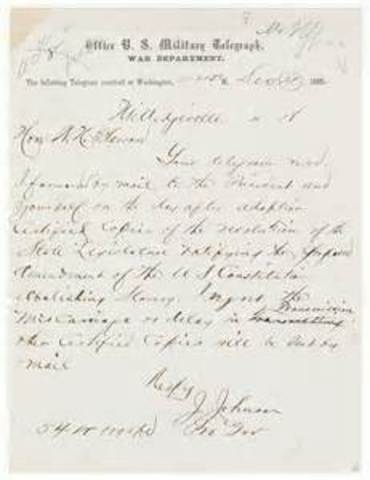 Office U. S. Military Telegraph,
WAR DEPARTMENT.
The following Telegram received at Washington, M. Dec 1865.
Milledgeville
Hon W. H. Seward
Your telegram recd.
I forward by mail to the President and
yourself on the day after adoption
certified copies of the resolution of the
State Legislature ratifying the
amendment of the U S Constitution
abolishing Slavery. I regret the
miscarriage or delay in transmission transmitting
other certified copies will be sent by
mail
Respy
J. Johnson
Pro Gov
54